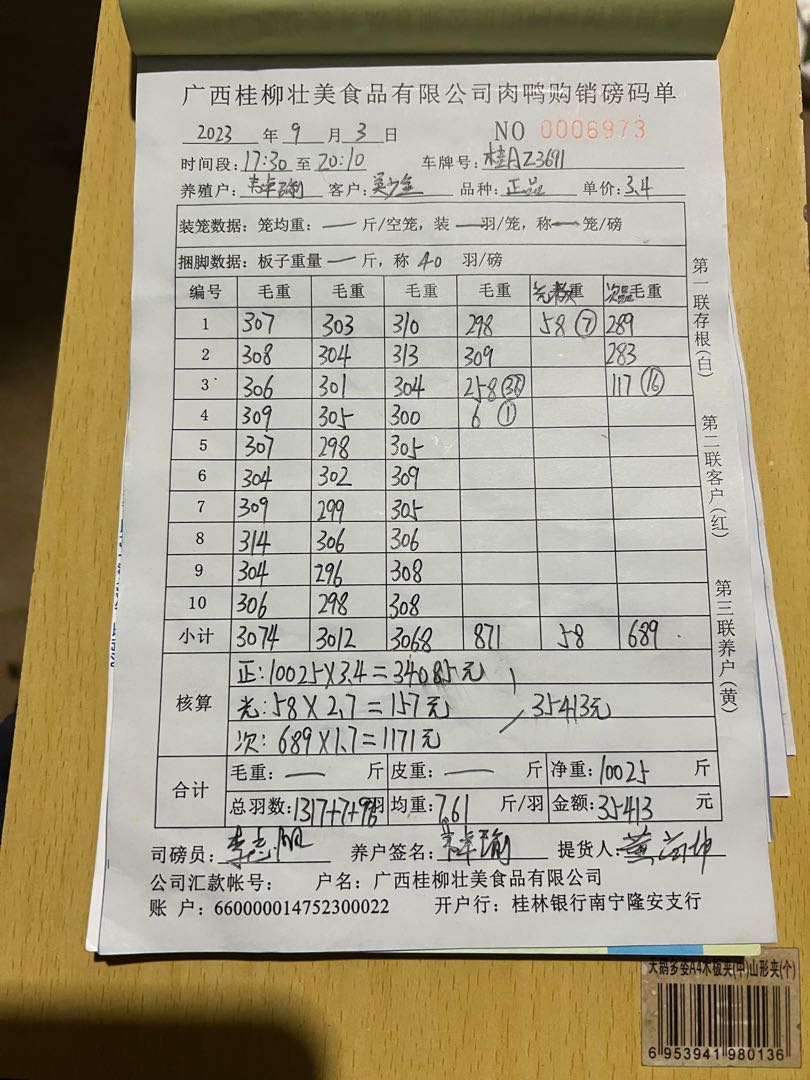 广西桂柳壮美食品有限公司肉鸭购销磅码单
2023 年 9 月 3 日 NO 0006973
时间段:17:30 至 20:10 车牌号:桂AZ3691
养殖户: 客户: 品种:正品 单价:3.4
装笼数据:笼均重:— 斤/空笼,装—羽/笼,称—笼/磅
捆脚数据:板子重量—斤,称 40 羽/磅
编号 毛重 毛重 毛重 毛重 重 次品毛重
1 307 303 310 298 58 ⑦ 289
2 308 304 313 309 283
3 306 301 304 258 117 ⑯
4 309 305 300 6 ①
5 307 298 305
6 304 302 309
7 309 299 305
8 314 306 306
9 304 296 308
10 306 298 308
小计 3074 3012 3068 871 58 689
核算
正:10025×3.4=34085元
光:58×2.7=157元 35413元
次:689×1.7=1171元
合计
毛重:— 斤 皮重:— 斤 净重:10025 斤
总羽数:1317+7+96羽 均重:7.61 斤/羽 金额:35413 元
司磅员: 养户签名: 提货人:
公司汇款帐号: 户名:广西桂柳壮美食品有限公司
账 户:660000014752300022 开户行:桂林银行南宁隆安支行
第一联存根(白)
第二联客户(红)
第三联养户(黄)
天鹅多姿A4木板夹(中)山形夹(个)
6 953941 980136